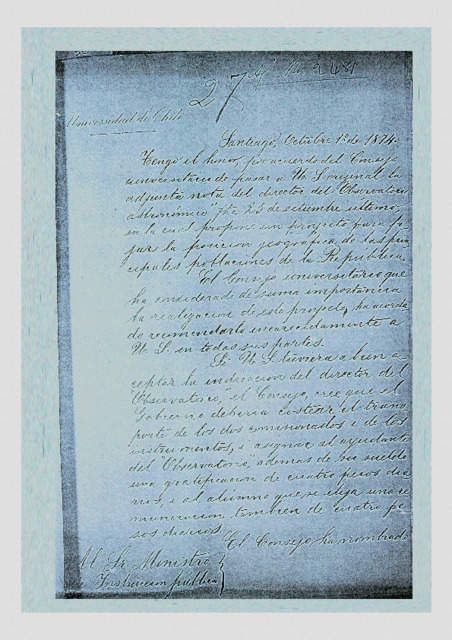 27 Nº 2481
Universidad de Chile
Santiago, Octubre 1º de 1874.
Tengo el honor, por acuerdo del Consejo
universitario de pasar a U.S. original la
adjunta nota del director del Observatorio
astronómico, fha 25 de setiembre último,
en la cual propone un proyecto para fi-
jar la posicion jeográfica de las prin-
cipales poblaciones de la República.
El Consejo universitario que
ha considerado de suma importancia
la realizacion de este proyecto, ha acorda-
do recomendarlo encarecidamente a
U.S. en todas sus partes.
Si U.S. tuviera a bien a-
ceptar la indicacion del director del
Observatorio, el Consejo cree que el
Gobierno deberia costear el tras
porte de los dos comisionados i de los
instrumentos, i asignar al ayudante
del Observatorio, ademas de su sueldo
una gratificacion de cuatro pesos dia-
rios, i al alumno que se elija una re-
muneracion tambien de cuatro pe-
sos diarios.
El Consejo ha nombrado
Al Sr. Ministro
de Instruccion pública